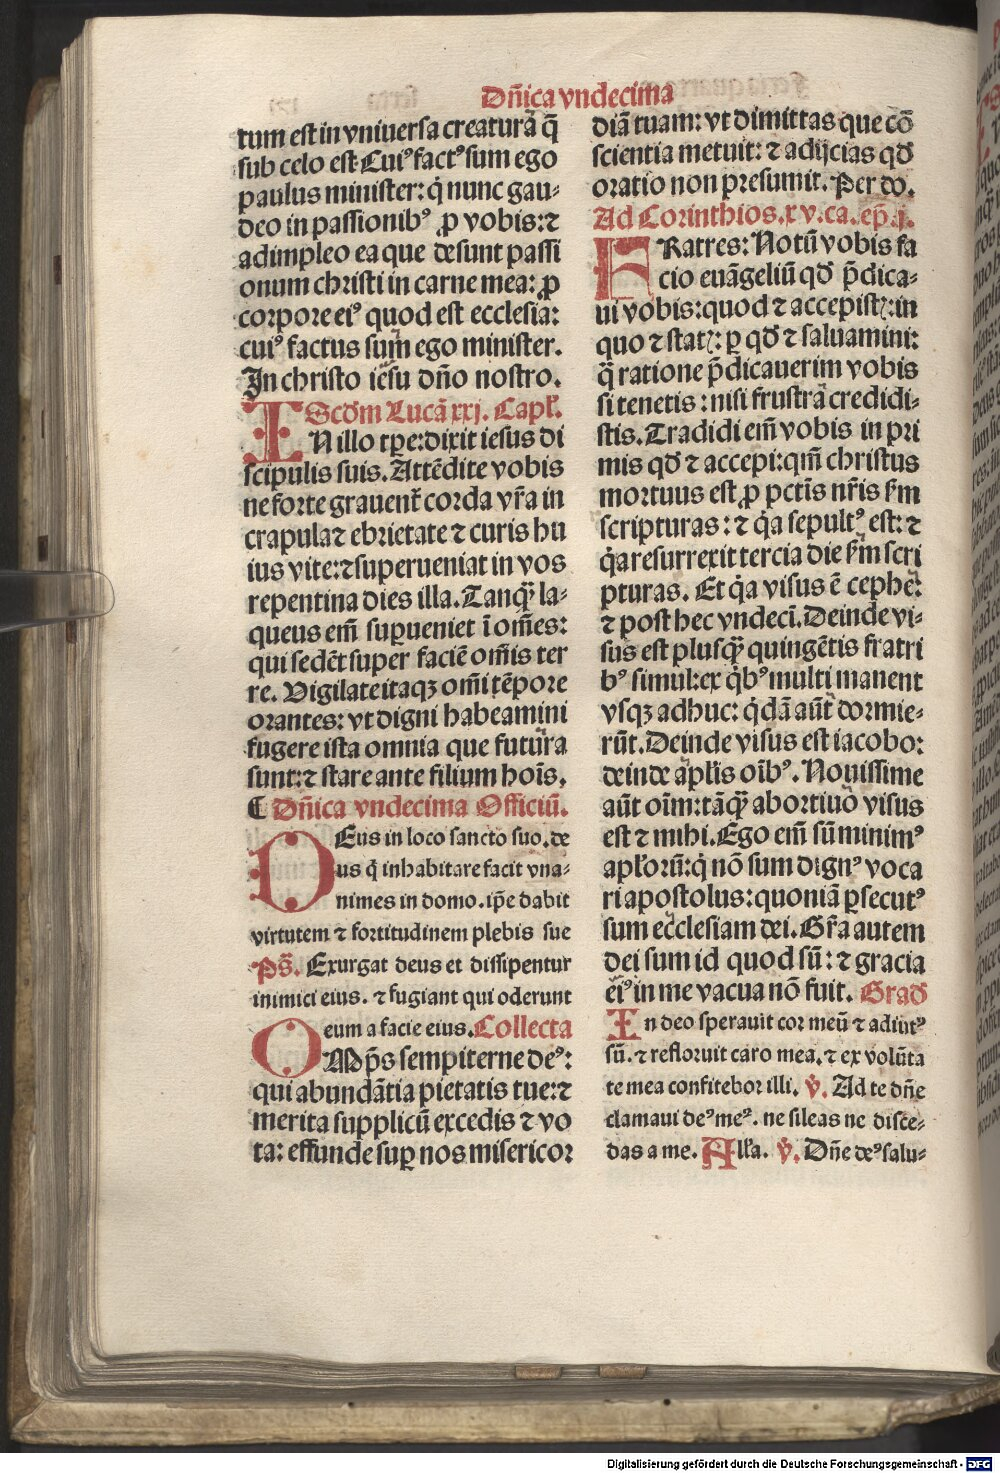 Dñica vndecima
tum est in vniuersa creatura q̃
sub celo est Cuiꝰ factꝰ sum ego
paulus minister: q̇ nunc gau⸗
deo in passionibꝰ ꝓ vobis: ⁊
adimpleo ea que desunt passi
onum christi in carne mea: ꝓ
corpore eiꝰ quod est ecclesia:
cuiꝰ factus sum ego minister.
In christo iesu dño nostro.
Scd̃m Lucã xxj. Capl̃.
IN illo tꝑe: dixit iesus di
scipulis suis. Attẽdite vobis
ne forte grauent̃ corda vr̃a in
crapula ⁊ ebrietate ⁊ curis hu
ius vite: ⁊ superueniat in vos
repentina dies illa. Tanqꝫ̃ la⸗
queus em̃ suꝑueniet ĩ om̃es:
qui sedẽt super faciẽ om̃is ter
re. Vigilate itaqꝫ om̃i tẽpore
orantes: vt digni habeamini
fugere ista omnia que futura
sunt: ⁊ stare ante filium hoĩs.
¶ Dñica vndecima Officiũ.
DEus in loco sancto suo. de
us q̇ inhabitare facit vna⸗
nimes in domo. ip̃e dabit
virtutem ⁊ fortitudinem plebis sue
Ps̃. Exurgat deus et dissipentur
inimici eius. ⁊ fugiant qui oderunt
eum a facie eius. Collecta
OMp̃s sempiterne deꝰ:
qui abundãtia pietatis tue: ⁊
merita supplicũ excedis ⁊ vo
ta: effunde suꝑ nos misericor
diã tuam: vt dimittas que cõ
scientia metuit: ⁊ adijcias qd̃
oratio non presumit. Per do.
Ad Corinthios. xv. ca. ep̃. j.
FRatres: Notũ vobis fa
cio euãgeliũ qd̃ p̃dica⸗
ui vobis: quod ⁊ accepistꝭ: in
quo ⁊ statꝭ: ꝑ qd̃ ⁊ saluamini:
q̃ ratione p̃dicauerim vobis
si tenetis: nisi frustra credidi⸗
stis. Tradidi em̃ vobis in pri
mis qd̃ ⁊ accepi: qm̃ christus
mortuus est ꝓ pctĩs nr̃is ẜm
scripturas: ⁊ q̇a sepultꝰ est: ⁊
q̇a resurrexit tercia die ẜm scri
pturas. Et q̇a visus ẽ cephe:
⁊ post hec vndeci. Deinde vi⸗
sus est plusqꝫ̃ quingẽtis fratri
bꝰ simul: ex q̇bꝰ multi manent
vsqꝫ adhuc: q̇dã aũt dormie⸗
rũt. Deinde visus est iacobo:
deinde apl̃is oĩbꝰ. Nouissime
aũt oĩm: tãqꝫ̃ abortiuo visus
est ⁊ mihi. Ego em̃ sũ minimꝰ
apl̃orũ: q̇ nõ sum dignꝰ voca
ri apostolus: quoniã ꝑsecutꝰ
sum ecclesiam dei. Gr̃a autem
dei sum id quod sũ: ⁊ gracia
eiꝰ in me vacua nõ fuit. Grad̃
In deo sperauit cor meũ ⁊ adiutꝰ
sũ. ⁊ refloruit caro mea. ⁊ ex volũta
te mea confitebor illi. ℣. Ad te dñe
clamaui deꝰ meꝰ. ne sileas ne disce⸗
das a me. All̃a. ℣. Dñe deꝰ salu⸗
Digitalisierung gefördert durch die Deutsche Forschungsgemeinschaft - DFG